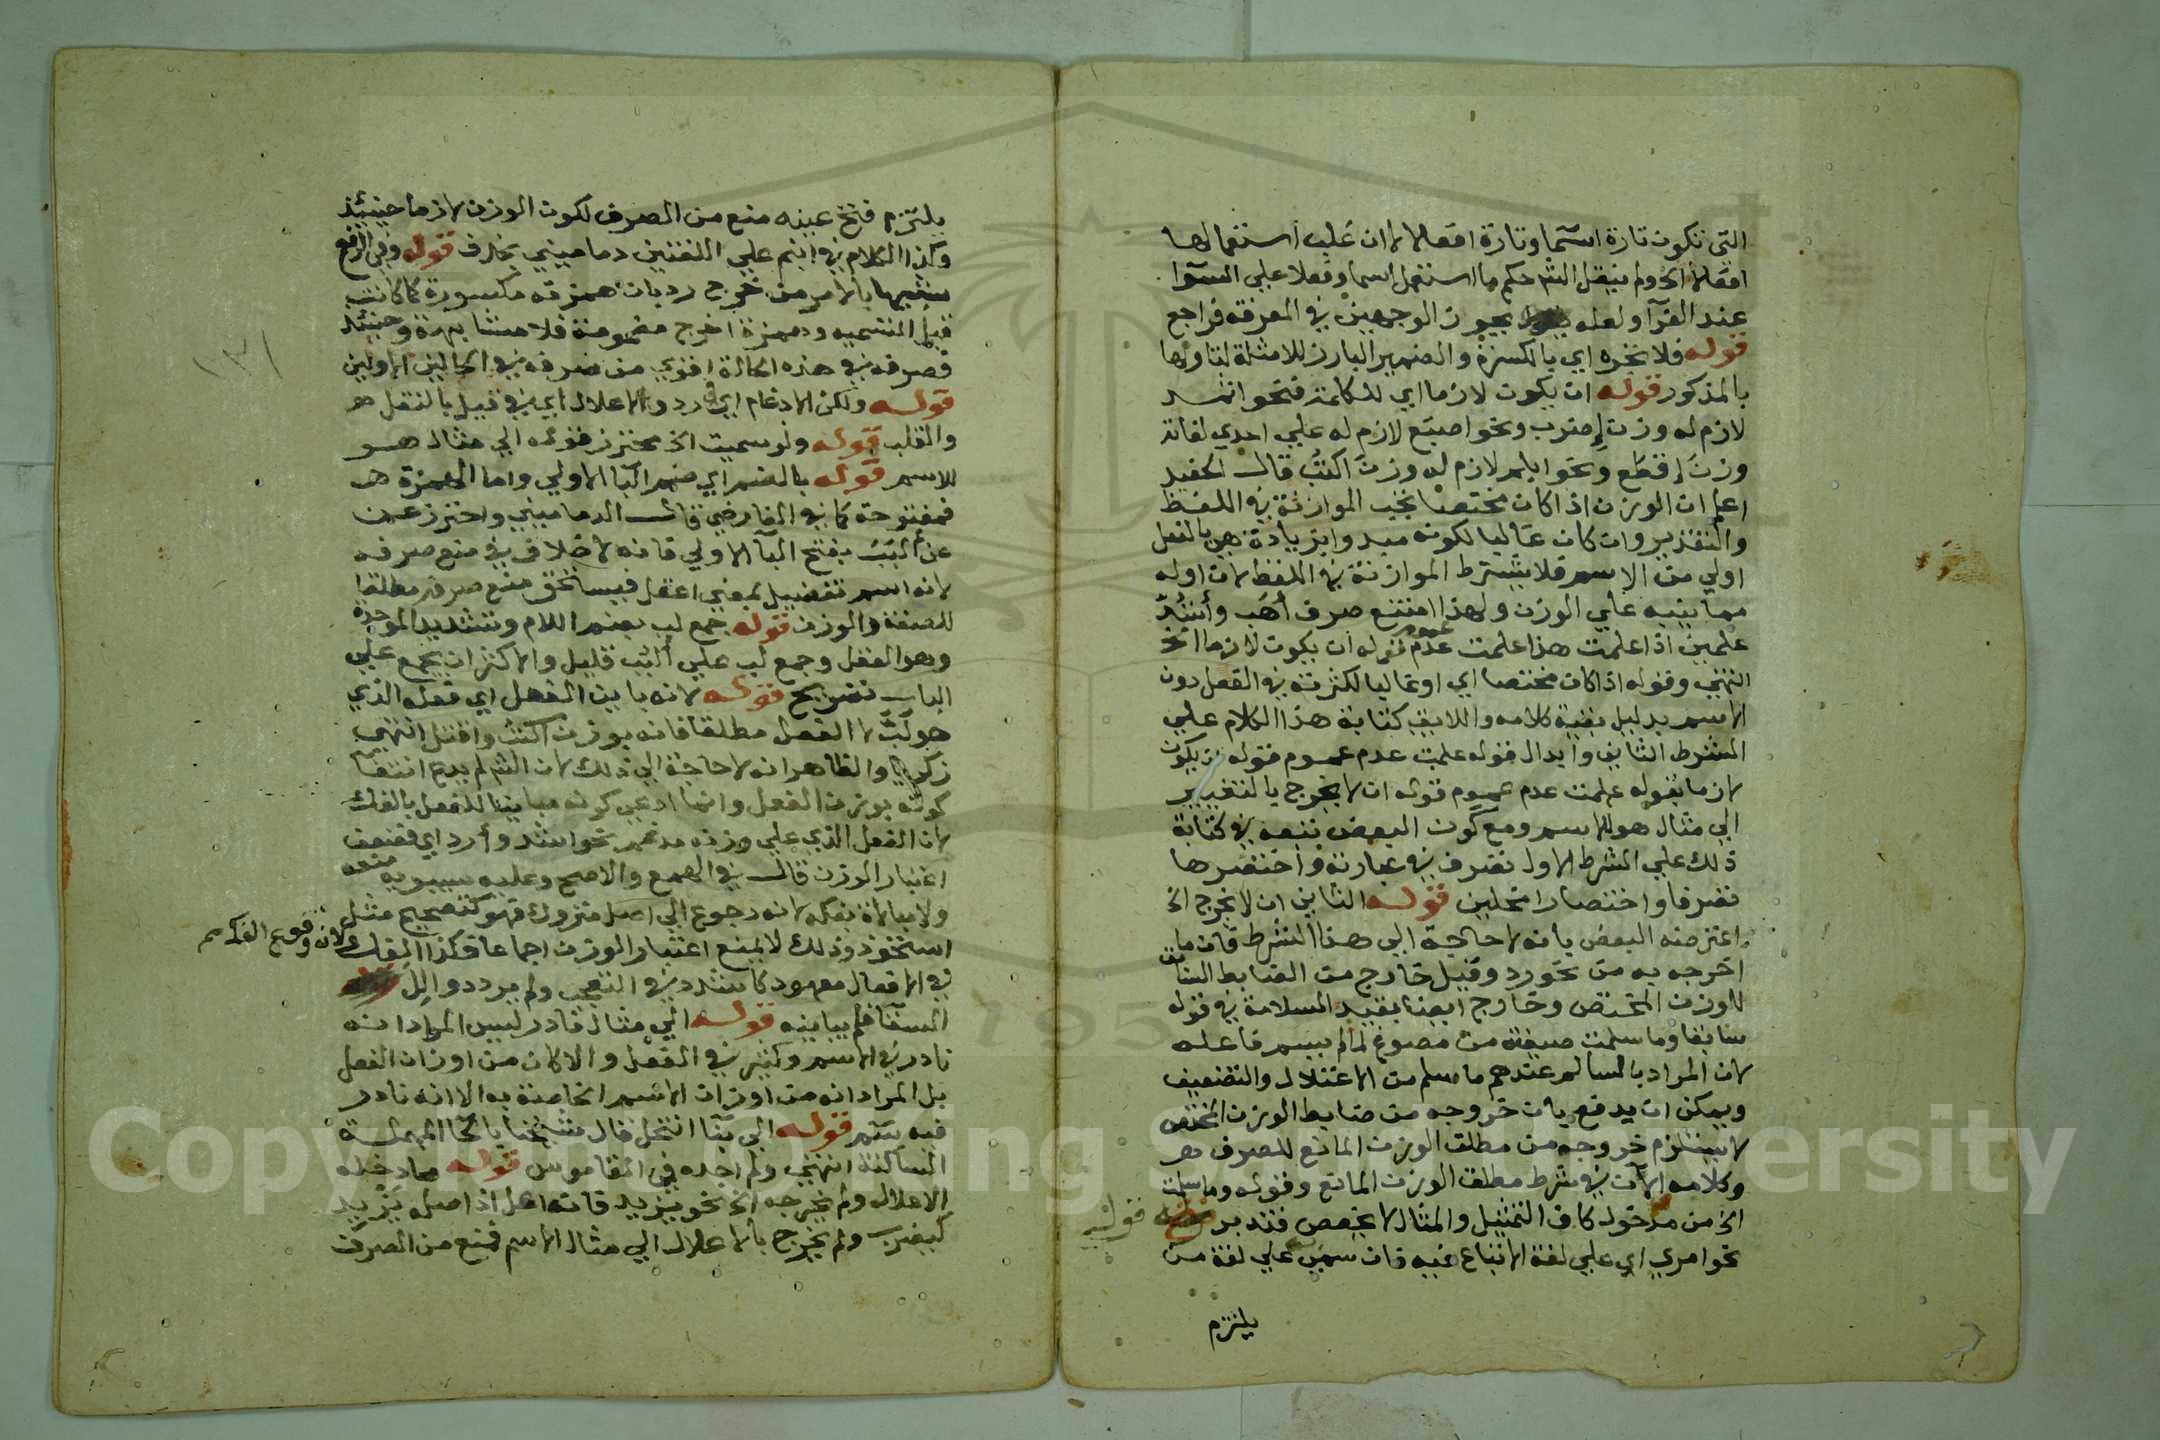 التي تكون تارة اسما وتارة افعالا لا ان غلب استعمالها
افعالا الخ ولم ينقل الشم حكم ما استعمل اسما وفعلا علي السوا
عند الفرآ ولعله يجوز الوجهين في المعرفة فراجع
قوله فلا نجره اي بالكسرة والضمير البارز للامثلة لتاولها
بالمذكور قوله ان يكون لازما اي للكلمة فنحو اثمد
لازم له وزن اضرب ونحو اصبع لازم له علي احدي لغاته
وزن إقطع ونحو ابلم لازم له وزن اكتب قال الحفيد
اعلم ان الوزن اذا كان مختصا تجب الموازنة في اللفظ
والتقدير وان كان غالبا لكونه مبدوا بزيادة هي بالفعل
اولي من الاسم فلا يشترط الموازنة في اللفظ لان اوله
مما ينبه علي الوزن ولهذا امتنع صرف أهب وأشد
علمين اذا علمت هذا علمت عدم عموم قوله ان يكون لازما الخ
انتهي وقوله اذا كان مختصا اي او غالبا لكثرته في الفعل دون
الاسم بدليل بقية كلامه واللايق كتابة هذا الكلام علي
الشرط الثاني وابدال قوله علمت عدم عموم قوله ان يكون
لازما بقوله علمت عدم عموم قوله ان لا يخرج بالتغيير
الي مثال هو للاسم ومع كون البعض تبعه في كتابة
ذلك علي الشرط الاول تصرف في عبارته واختصرها
تصرفا واختصارا مخلين قوله الثاني ان لا يخرج الخ
اعترضه البعض بانه لا حاجة الي هذا الشرط فان ما
اخرجه به من نحو رد وقيل خارج من الضابط السابق
للوزن المختص وخارج ايضا بقيد السلامة في قوله
سابقا وما سلمت صيغته من مصوغ لما لم يسم فاعله
لان المراد بالسالم عندهم ما سلم من الاعتلال والتضعيف
ويمكن ان يدفع بان خروجه من ضابط الوزن المختص
لا يستلزم خروجه من مطلق الوزن المانع للصرف هـ
وكلامه الآن في شرط مطلق الوزن المانع وقوله وما سلمت
الخ من مدخول كاف التمثيل والمثال لا يخصص فتدبر قوله
نحو امرئ اي علي لغة الاتباع فيه فان سمي علي لغة من
يلتزم
يلتزم فتح عينه منع من الصرف لكون الوزن لازما حينئذ
وكذا الكلام في ابنم علي اللغتين دماميني بخلاف قوله وفي الرفع
شبيها بالامر من خرج رد بان همزته مكسورة كما كانت
قبل التسمية وهمزة اخرج مضمومة فلا مشابهة وحينئذ
فصرفه في هذه الحالة اقوي من صرفه في الحالين الاولين
قوله ولكن الادغام اي في رد والاعلال اي في قيل بالنقل هـ
والقلب قوله ولو سميت الخ محترز قوله الي مثال هو
للاسم قوله بالضم اي ضم البا الاولي واما الهمزة هـ
فمفتوحة كما في الفارضي قال الدماميني واحترز عن
عن ألبب بفتح البآ الاولي فانه لا خلاف في منع صرفه
لانه اسم تفضيل بمعني اعقل فيستحق منع صرفه مطلقا
للصفة والوزن قوله جمع لب بضم اللام وتشديد الموحدة
وهو العقل وجمع لب علي ألبب قليل والاكثر ان يجمع علي
الباب تصريح قوله لانه باين الفعل اي فعله الذي
هو لبّ لا الفعل مطلقا فانه بوزن اكتب واقتل انتهي
زكريا والظاهر انه لا حاجة الي ذلك لان الشم لم يدع انتفآ
كونه بوزن الفعل وانما ادعي كونه مباينا للفعل بالفك
لان الفعل الذي علي وزنه مدغم نحو اشد وأرد اي فضعف
اعتبار الوزن قال في الهمع والاصح وعليه سيبويه منعه
ولا مبالاة بفكه لانه رجوع الي اصل متروك فهو كتصحيح مثل
استحوذ وذلك لا يمنع اعتبار الوزن اجماعا فكذا الفك ولان وقوع الفك صح
في الافعال معهود كاشدد في التعجب ولم يردد وألل
السقآ فلم يباينه قوله الي مثال نادر ليس المراد انه
نادر في الاسم وكثير في الفعل والا كان من اوزان الفعل
بل المراد انه من اوزان الاسم الخاصة به الا انه نادر
فيه سم قوله الي بنآ انقحل قال شيخنا بالحآ المهملة
الساكنة انتهي ولم اجده في القاموس قوله مما دخله
الاعلال ولم يخرجه الخ نحو يزيد فانه اعل اذ اصله يزيد
كيضرب ولم يخرج بالاعلال الي مثال الاسم فمنع من الصرف
١٣١